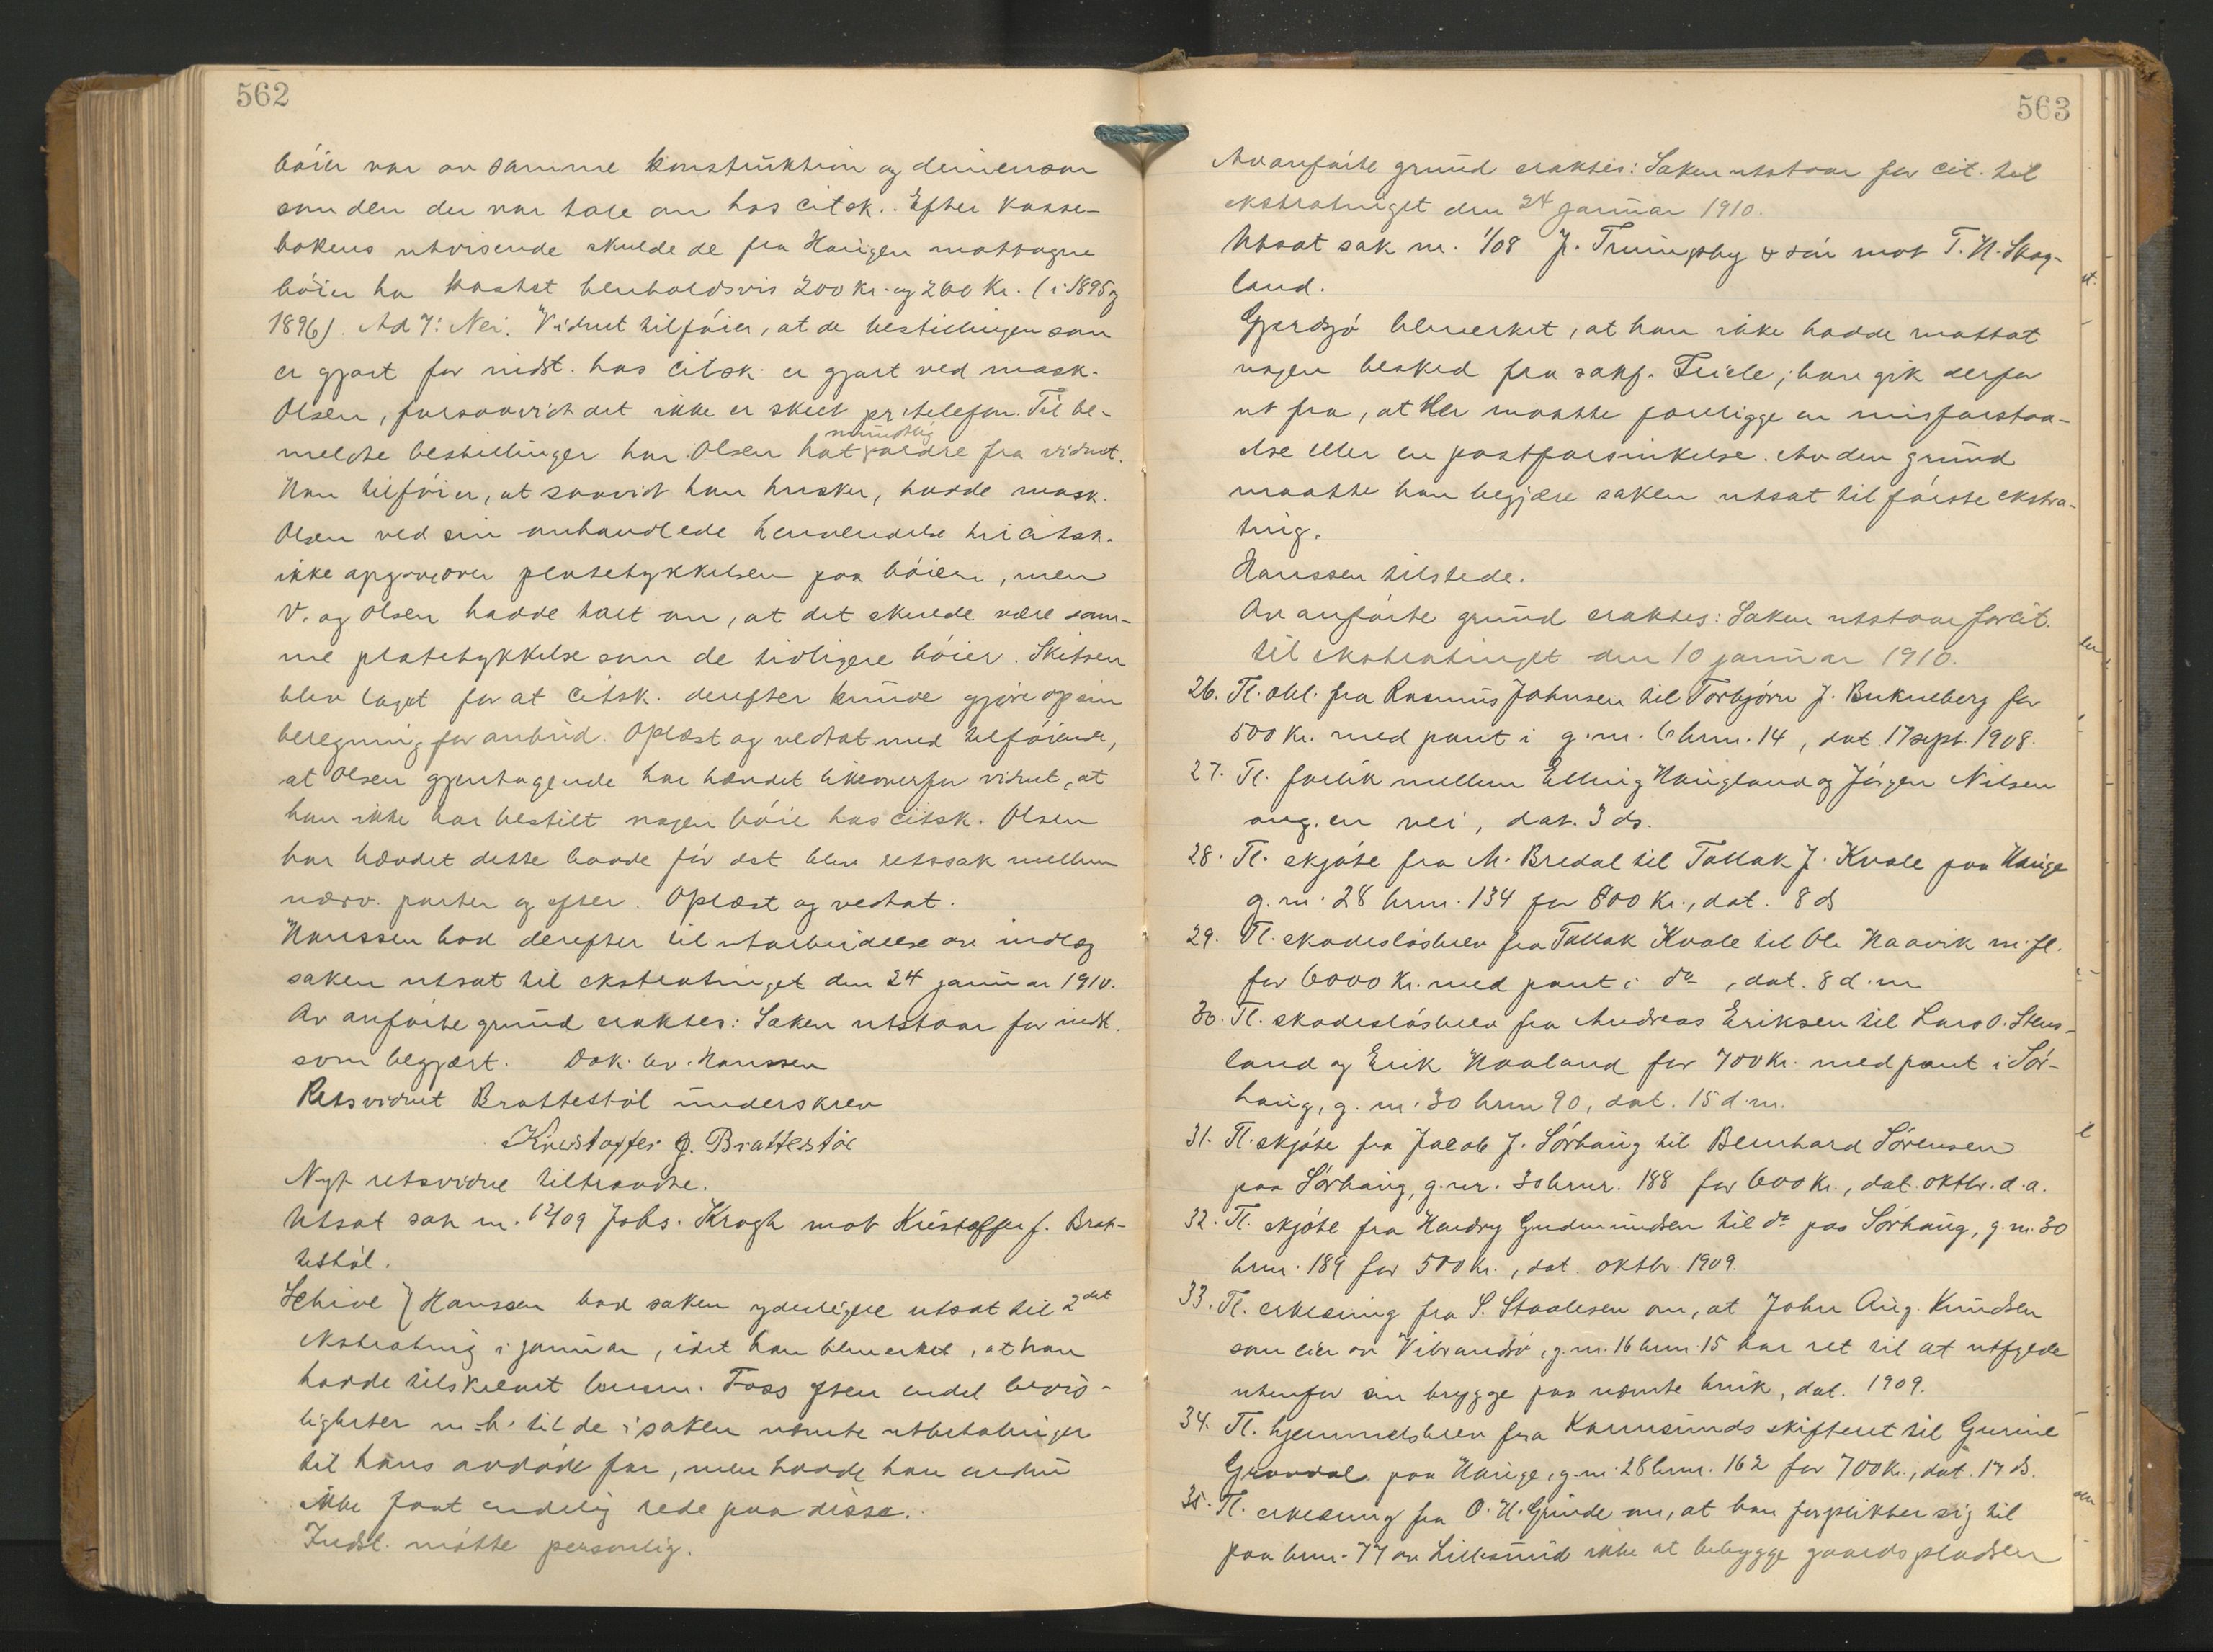 562
bøier var av samme konstruktion og dimension
som den der var tale om hos citsk. Efter kasse-
bokens utvisende skulde de fra Haugen mottagne
bøier ha kostet henholdsvis 200 kr. og 260 Kr. (i 1895 og
1896). Ad 7: Nei. Vidnet tilføier, at de bestillinger som
er gjort for indst. hos citsk. er gjort ved mask.
Olsen, forsaavidt det ikke er skeet pr. telefon. Til be-
meldte bestillinger har Olsen hat mundtlig ordre fra vidnet.
Han tilføier, at saavidt han husker, hadde mask.
Olsen ved sin omhandlede henvendelse til citsk.
ikke opgave over platetykkelsen paa bøien, men
V. og Olsen hadde talt om, at det skulde være sam-
me platetykkelse som de tidligere bøier. Skitsen
blev laget for at citsk. derefter kunde gjøre op sin
beregning for anbud. Oplæst og vedtat med tilføiende,
at Olsen gjentagende har hævdet likeoverfor vidnet, at
han ikke har bestilt nogen bøie hos citsk. Olsen
har hævdet dette baade før det blev retssak mellem
nærv. parter og efter. Oplæst og vedtat.
Hanssen bad derefter til utarbeidelse av indlæg
saken utsat til ekstratinget den 24 januar 1910.
Av anførte grund eraktes: Saken utstaar for indst.
som begjært. Dok. bev. Hanssen
Retsvidnet Brattestøl underskrev
Kristoffer J. Brattestøl
Nyt retsvidne tiltraadte.
Utsat sak nr. 12/09 Johs. Krogh mot Kristoffer J. Brat-
testøl.
Schive / Hanssen bad saken yderligere utsat til 2det
ekstrating i januar, idet han bemerket, at han
hadde tilskrevet lensm. Foss often endel bevis-
ligheter m. h. til de i saken nævnte utbetalinger
til hans avdøde far, men hadde han endnu
ikke faat endelig rede paa disse.
Indst. møtte personlig.
563
Av anførte grund eraktes: Saken utstaar for cit. til
ekstratinget den 24 januar 1910.
Utsat sak nr. 1/08 J. Trumphy & søn mot T. H. Skog-
land.
Gjerdsjø bemerket, at han ikke hadde mottat
nogen besked fra sakf. Teile; han gik derfor
ut fra, at der maatte foreligge en misforstaa-
else eller en postforsinkelse. Av den grund
maatte han begjære saken utsat til første ekstra-
ting.
Hanssen tilstede.
Av anførte grund eraktes: Saken utstaar for cit.
til ekstratinget den 10 januar 1910.
26. Tl. obl. fra Rasmus Johnsen til Torbjørn J. Bukneberg for
500 Kr. med pant i g.nr. 6 brnr. 14, dat. 17 sept. 1908.
27. Tl. forlik mellem Elling Haugland og Jørgen Nilsen
ang. en vei, dat. 3 ds.
28. Tl. skjøte fra M. Bredal til Tollak J. Kvale paa Hauge
g. nr. 28 brnr. 134 for 800 Kr., dat. 8 ds
29. Tl. skadesløsbrev fra Tollak Kvale til Ole Naavik m. fl.
for 6000 Kr. med pant i do, dat. 8 d. m.
30. Tl. skadesløsbrev fra Andreas Eriksen til Lars O. Stens-
land og Erik Haaland for 700 Kr. med pant i Sør-
haug, g. nr. 30 brnr 90, dat. 15 d. m.
31. Tl. skjøte fra Jacob J. Sørhaug til Bernhard Sørensen
paa Sørhaug, g.nr. 30 brnr. 188 for 600 Kr., dat. oktbr. d.a.
32. Tl. skjøte fra Hardry Gudmundsen til do paa Sørhaug, g. nr. 30
brnr. 189 for 500 Kr., dat. oktbr. 1909.
33. Tl. erklæring fra S. Staalesen om, at John Aug. Knudsen
som eier av Vibrandsø, g. nr. 16 brnr. 15 har ret til at utfylde
utenfor sin brygge paa nævnte bruk, dat. 1909.
34. Tl. hjemmelsbrev fra Karmsunds skifteret til Gurine
Grøndal paa Hauge, g. nr. 28 brnr. 162 for 700 Kr., dat. 17 ds.
35. Tl. erklæring fra O. H. Grinde om, at han forplikter sig til
paa brnr. 77 av Lillesund ikke at bebygge gaardspladsen